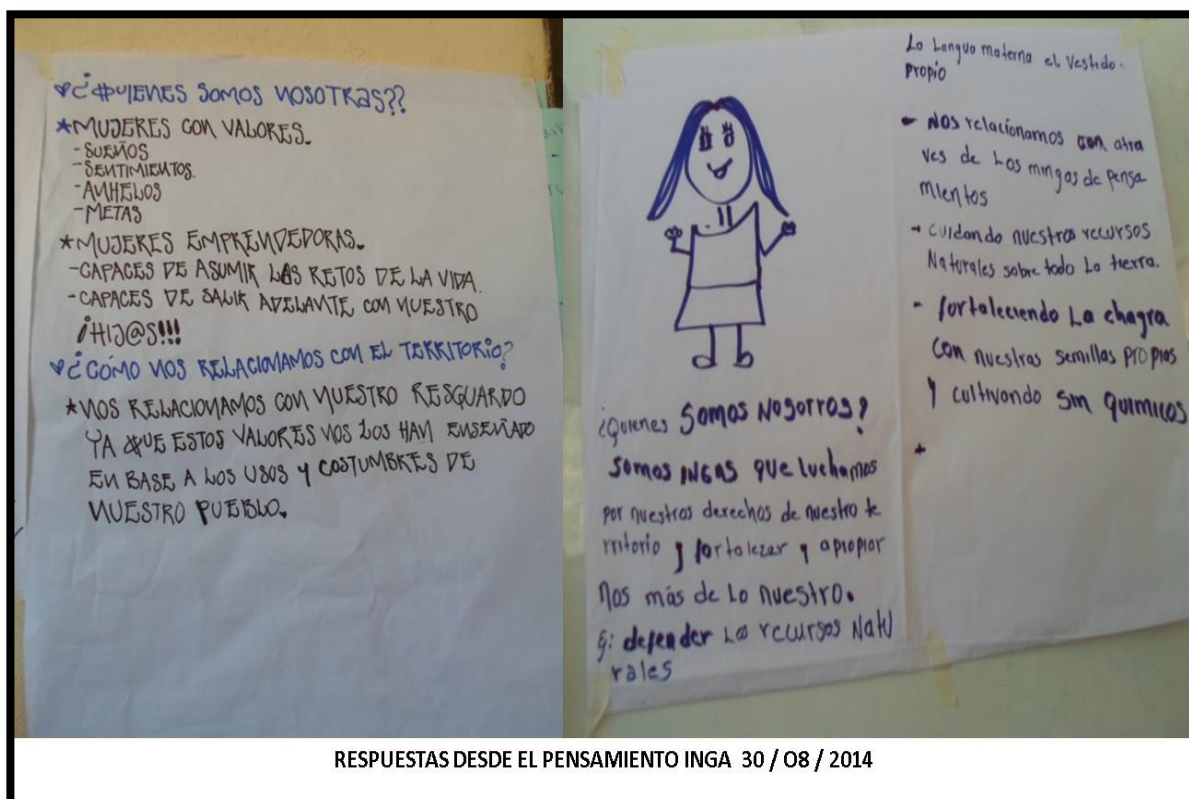 ¿QUIENES SOMOS NOSOTRAS??
*MUJERES CON VALORES.
-SUEÑOS
-SENTIMIENTOS.
-ANHELOS
-METAS
*MUJERES EMPRENDEDORAS.
-CAPACES DE ASUMIR LOS RETOS DE LA VIDA.
-CAPACES DE SALIR ADELANTE CON NUESTRO
¡HIJ@S!!!
¿COMO NOS RELACIONAMOS CON EL TERRITORIO?
*NOS RELACIONAMOS CON NUESTRO RESGUARDO
YA QUE ESTOS VALORES NOS LOS HAN ENSEÑADO
EN BASE A LOS USOS Y COSTUMBRES DE
NUESTRO PUEBLO.
¿Quienes SOMOS NOSOTROS?
SOMOS INGAS QUE luchamos
por nuestros derechos de nuestro te
rritorio y fortalezar y apropiar
nos más de Lo nuestro.
defender Los recursos Natu
rales
La Lengua materna el Vestido.
propio
- NOS relacionamos con atra
ves de Las mingas de pensa
mientos
- cuidando nuestros recursos
Naturales sobre todo La tierra.
- fortaleciendo La chagra
con nuestras semillas propias
Y cultivando sin quimicos
RESPUESTAS DESDE EL PENSAMIENTO INGA 30 / O8 / 2014